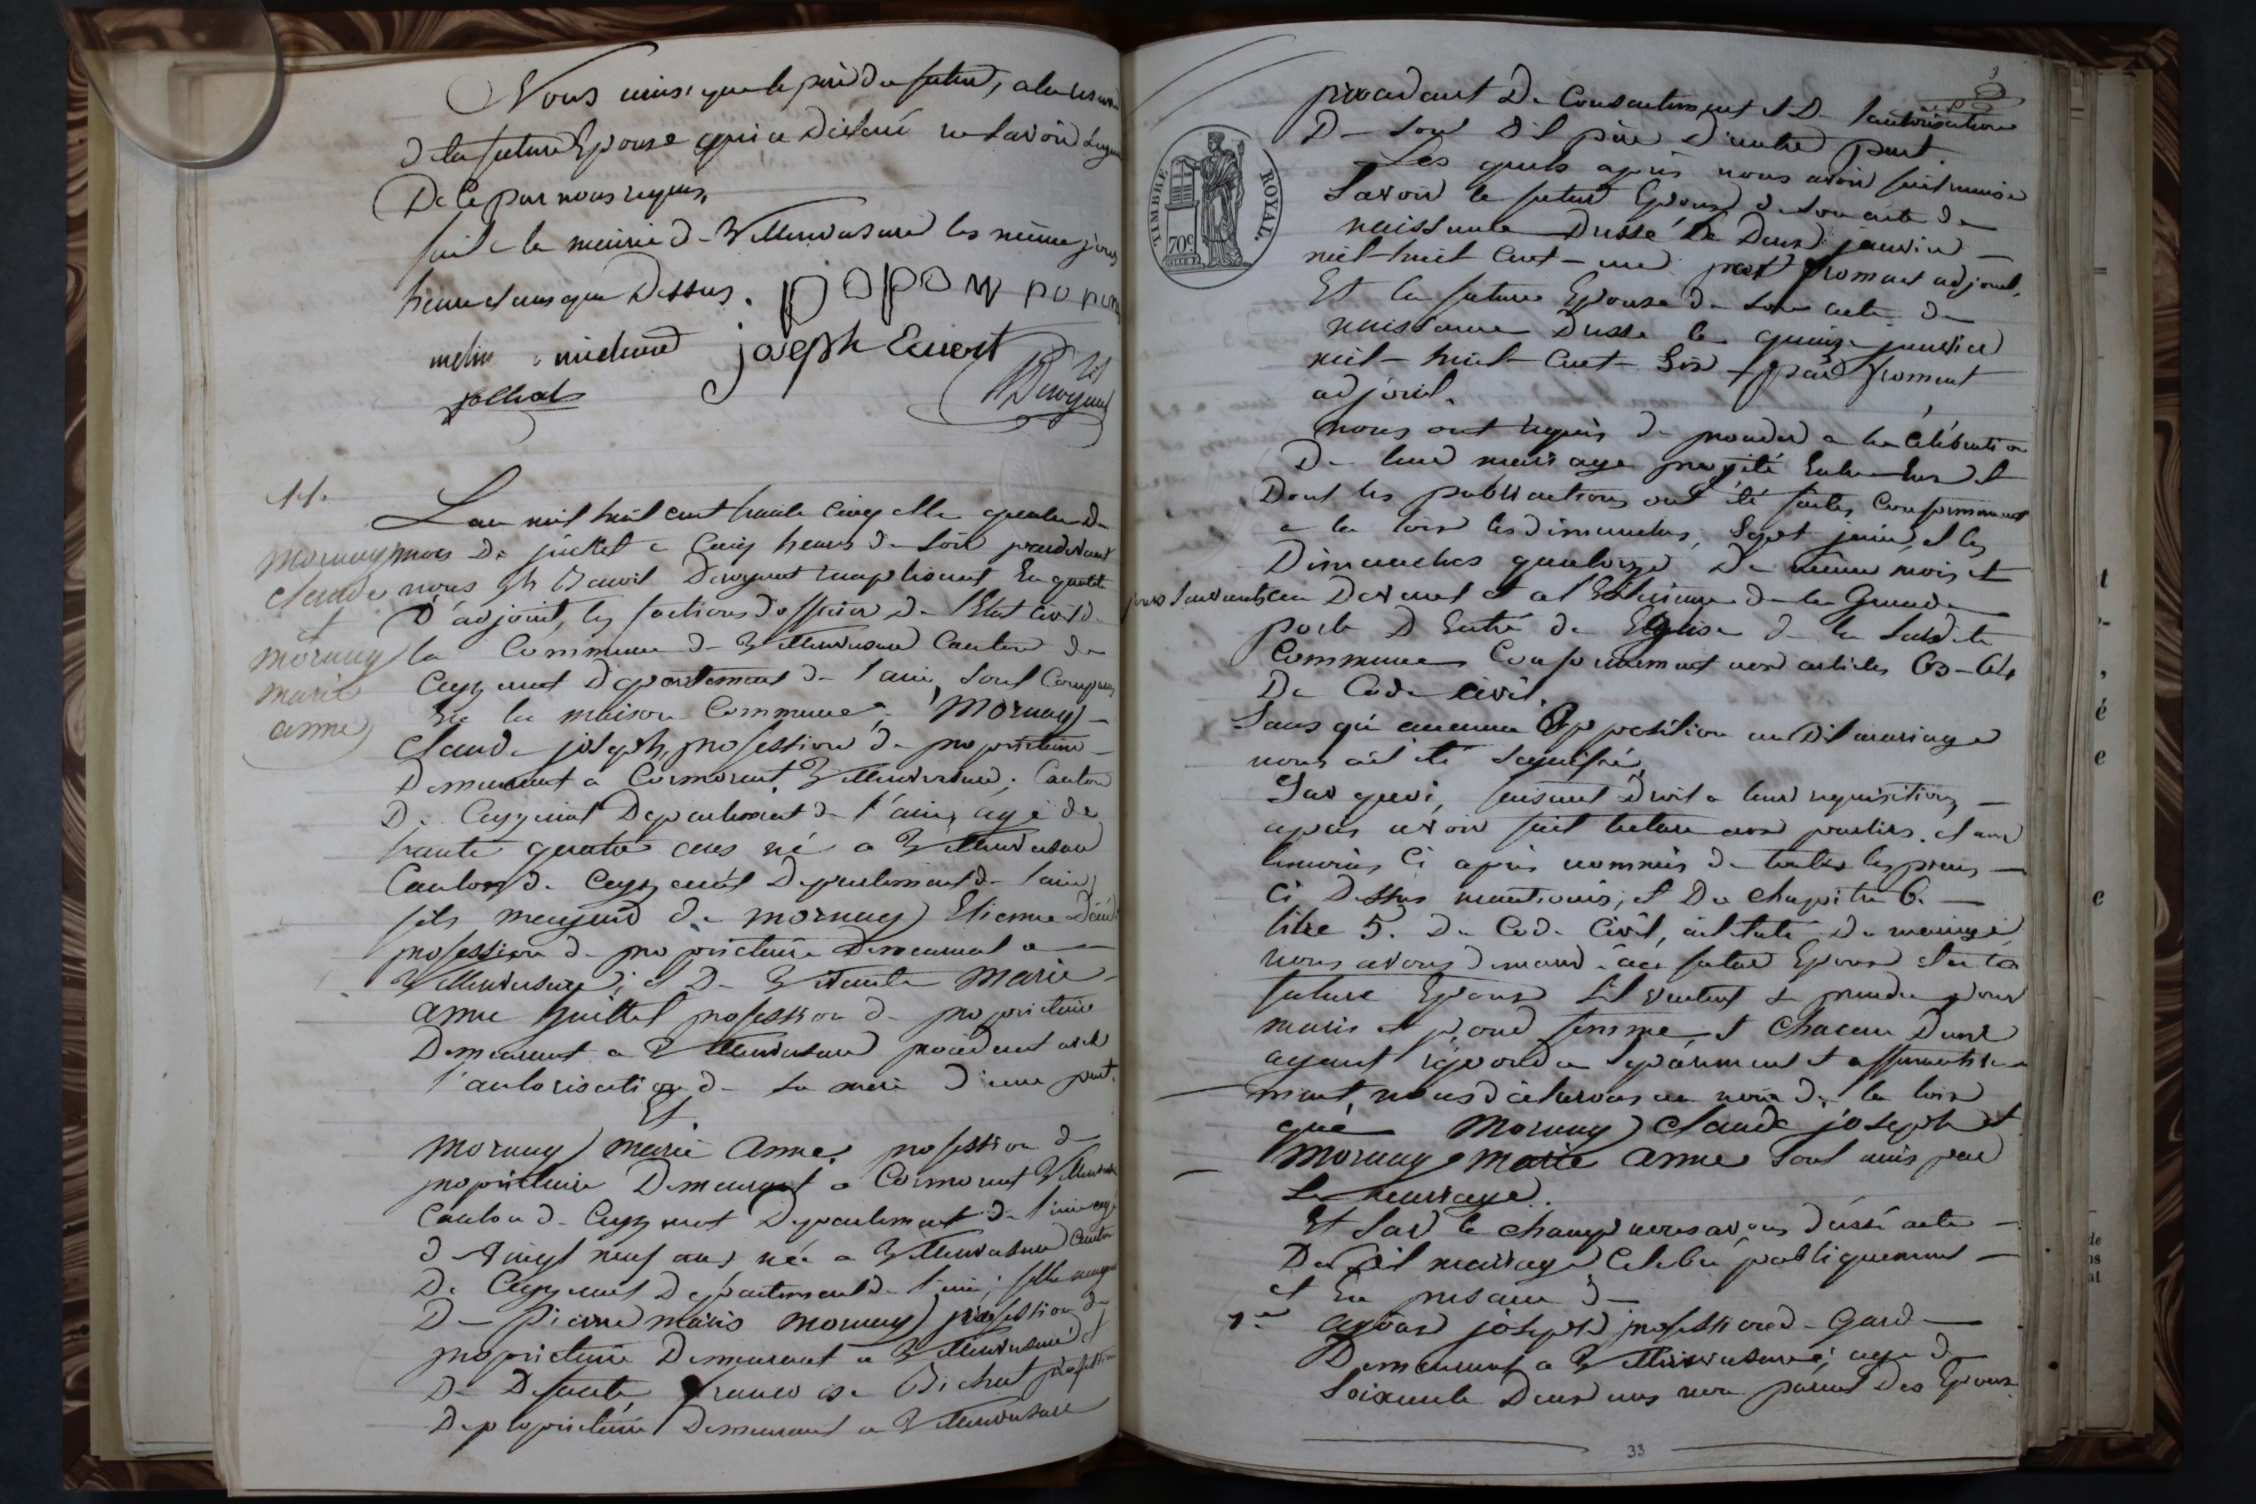 Nous ainsi que le père du futur, a la reserve
de la future Epouse qui a déclaré ne Savoir Signer
De Ce par nous requis,
fait a la mairie de Villereversure les même jour
heure et ans que Dessus. popon popon
melin michaud joseph Ecuert
pollliat
11.
L'an mil huit cent trente cinq et le quatre du
mornay mois De juillet a Cinq heures de Soir pardevant
Claude nous Devoyant remplissant En qualité
et D'adjoint, les foctions d'officier De l'Etat Civil de
mornay la Commune de Villereversure Canton de
marie Ceyzeriat Département de l'ain, Sont Comparus
anne En la maison Commune, Mornay
Claude joseph, profession de propriétaire
Demeurant a Cormorant, Villereversure, Canton
De Ceyzeriat Departement de l'ain, agé de
trante quatre ans né a Villereversure
Canton de Ceyzeriat Departement de l'ain,
fils majeur de mornay Etienne
profession de propriétaire Demeurant a
Villereversure; et De Vivante Marie
anne Guillet profession de propriétaire
Demeurant a Villereversure procédant avec
l'autorisation de Sa mère D'une part.
Et
Mornay Marie Anne, profession de
propriétaire Demeurant a Cormorant Villereversure
Canton de Ceyzeriat Departement de l'ain agé
de Vingt neuf ans née a Villereversure Canton
De Ceyzeriat Département de l'ain; fille majeure
De Pierre maris mornay profession de
propriétaire Demeurant a Villereversure et
De Defunte francoise Bichat profession
De propriétaire Demeurant a Villereversure
procédant De Consentement et De l'autorisation
De Son Dit père D'autre part.
Les quels après nous avoir fait remise
Savoir le futur Epoux de Son acte de
naissance Dressé le Deux janvier
mil-huit Cent-un par fromant adjoint,
Et la future Epouse de Son acte de
naissance Dressé le quinze janvier
mil-huit Cent-Six par froment
adjoint.
nous ont requis de procéder a la Célébration
De leur mariage projeté Entre Eux et
Dont les publications ont été faites Conformement
a la loix les dimanches, Sept juin, et les
Dimanches quatorze De même mois et
jours Suivants au Devant et a l'Extérieure de la Grande
porte D'Entré de l'Eglise de la Susdite
Commune Conformement aux articles 63-64
De Code civil.
Sans qu'aucune Opposition au Dit mariage
nous ait été Signifié,
Sur quoi, faisant Droit a leur requisition,
après avoir fait lecture aux parties et aux
temoins Ci après nommés de toutes les pieces
Ci Dessus mentionés, et Du Chapitre 6.
titre 5. De Code Civil, intitulé De mariage,
nous avons demandé au futur Epoux et a la
future Epouse S'il veulent Se prendre pour
maris et pour femme et Chacun D'eux
ayant répondu Separement et affirmative
ment, nous déclarons au nom De la loix
que Mornay Claude joseph et
Mornay Marie Anne Sont unis par
Le mariage.
Et Sur le Champ nous avons dressé acte
Du Dit mariage Celebré publiquement
et En presence de
1er joseph profession de Garde
Demeurant a Villereversure, agé de
Soixante Deux ans non parent Des Epoux
TIMBRE ROYAL.
70c
33